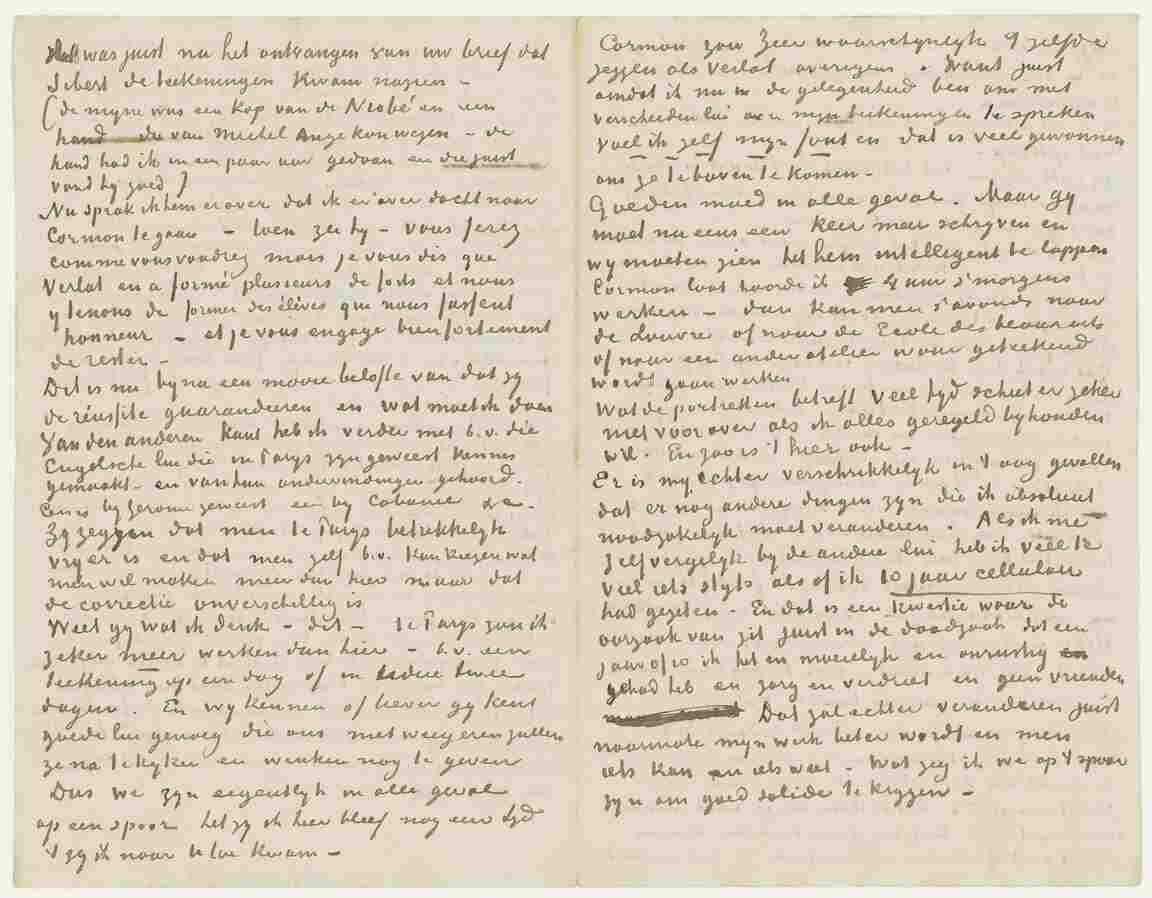 was juist na het ontvangen van uw brief dat
Sibert de teekeningen kwam nazien –
(de mijne was een kop van de Niobé en een
hand die van Michel Ange kon wezen – de
hand had ik in een paar uur gedaan en die juist
vond hij goed)
Nu sprak ik hem erover dat ik er over dacht naar
Cormon te gaan – toen zei hij – vous ferez
comme vous voudrez mais je vous dis que
Verlat en a formé plusieurs de forts et nous
y tenons de former des élèves que nous fassent
honneur – et je vous engage bien fortement
de rester –
Dit is nu bijna een mooie belofte van dat zij
de réussite guarandeeren en wat moet ik doen
Van den anderen kant heb ik verder met b.v. die
Engelsche lui die in Parijs zijn geweest kennis
gemaakt – en van hun ondervindingen gehoord.
Een is bij Gerome geweest een bij Cabanel &c –
Zij zeggen dat men te Parijs betrekkelijk
vrijer is en dat men zelf b.v. kan kiezen wat
men wil maken meer dan hier maar dat
de correctie onverschillig is
Weet gij wat ik denk – dit – te Parijs zou ik
zeker meer werken dan hier – b.v. een
teekening op een dag of in iedere twee
dagen. En wij kennen of liever gij kent
goede lui genoeg die ons niet weigeren zullen
ze na te kijken en wenken nog te geven
Dus we zijn eigentlijk in alle geval
op een spoor hetzij ik hier bleef nog een tijd
't zij ik naar U toe kwam –
Cormon zou zeer waarschijnlijk 't zelfde
zeggen als Verlat overigens. Want juist
omdat ik nu in de gelegenheid ben om met
verscheiden lui over mijn teekeningen te spreken
voel ik zelf mijn fouten en dat is veel gewonnen
om ze te boven te komen –
Goeden moed in alle geval. Maar gij
moet nu eens een keer meer schrijven en
wij moeten zien het hem intelligent te lappen
Cormon laat hoorde ik 4 uur s'morgens
werken – dan kan men s'avonds naar
de Louvre of naar de Ecole des beaux arts
of naar een ander atelier waar geteekend
wordt gaan werken
Wat de portretten betreft veel tijd schiet er zeker
niet voor over als ik alles geregeld bijhouden
wil. En zoo is 't hier ook –
Er is mij echter verschrikkelijk in 't oog gevallen
dat er nog andere dingen zijn die ik absoluut
noodzakelijk moet veranderen. Als ik me
zelf vergelijk bij de andere lui heb ik veel te
veel iets stijfs alsof ik 10 jaar cellulair
had gezeten. En dat is een kwestie waar de
oorzaak van zit juist in de daadzaak dat een
jaar of 10 ik het en moeielijk en onrustig
gehad heb en zorg en verdriet en geen vrienden
Dat zal echter veranderen juist
naarmate mijn werk beter wordt en men
iets kan en iets weet. Wat zeg ik we op 't spoor
zijn om goed solide te krijgen –